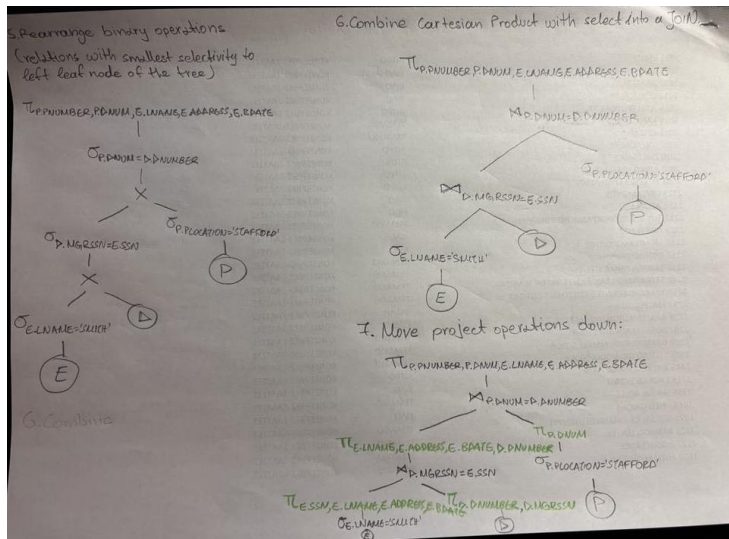 5. Rearrange binary operations
(relations with smallest selectivity to
left leaf node of the tree)
π P.PNUMBER, P.DNUM, E.LNAME, E.ADDRESS, E.BDATE
σ P.DNUM=D.DNUMBER
×
σ D.MGRSSN=E.SSN
σ P.PLOCATION='STAFFORD'
P
×
σ E.LNAME='SMITH'
D
E
6. Combine
6. Combine Cartesian Product with select into a JOIN
π P.PNUMBER, P.DNUM, E.LNAME, E.ADDRESS, E.BDATE
⋈ P.DNUM=D.DNUMBER
σ P.PLOCATION='STAFFORD'
⋈ D.MGRSSN=E.SSN
P
D
σ E.LNAME='SMITH'
E
7. Move project operations down:
π P.PNUMBER, P.DNUM, E.LNAME, E.ADDRESS, E.BDATE
⋈ P.DNUM=D.DNUMBER
π P.DNUM
π E.LNAME, E.ADDRESS, E.BDATE, D.DNUMBER
σ P.PLOCATION='STAFFORD'
⋈ D.MGRSSN=E.SSN
P
π E.SSN, E.LNAME, E.ADDRESS, E.BDATE
π D.DNUMBER, D.MGRSSN
σ E.LNAME='SMITH'
D
E